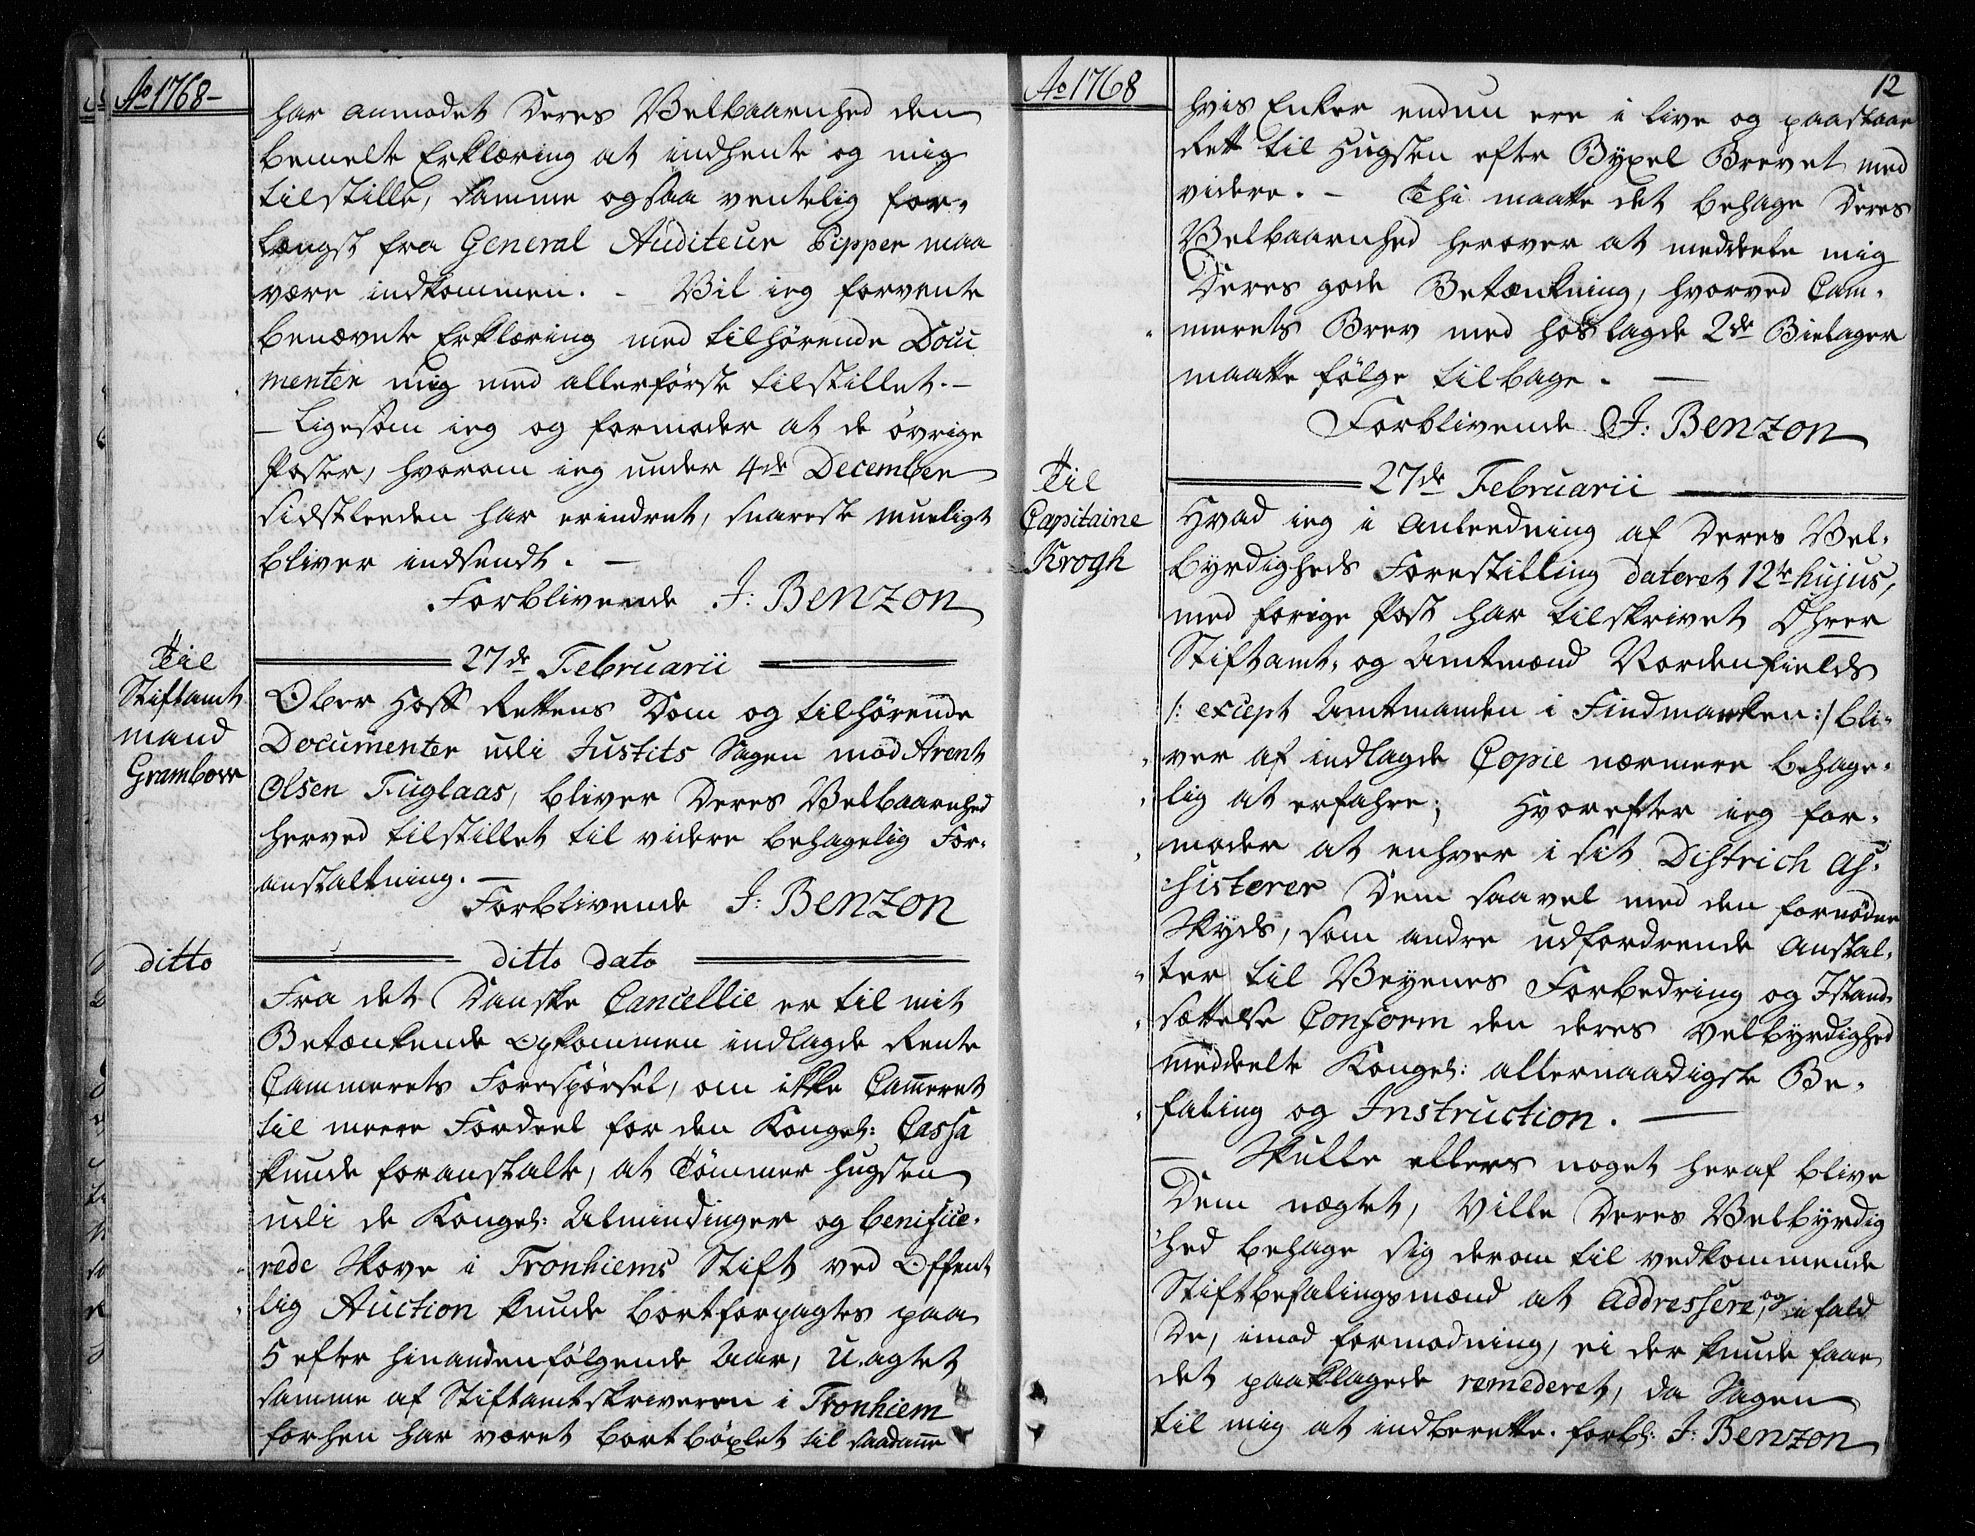 Ao 1768-
har anmodet Deres Velbaarnhed den
bemelte Erklæring at indhente og mig
tilstille, samme ogsaa ventelig for-
længst fra General Auditeur Pipper maa
være indkommen. - Vil ieg forvente
benævnte Erklæring med tilhørende Docu
menter mig med allerførste tilstillet. -
- Ligesom ieg og formoder at de øvrige
Poster, hvorom ieg under 4de December
sidstleeden har erindret, snareste mueligt
bliver indsendt. -
Forblivende J: Benzon
Til
Stiftamt
mand
Grambow
27de Februarii
Ober Hoff Rettens Dom og tilhørende
Documenter udi Justits Sagen mod Arent
Olsen Fuglaas, bliver Deres Velbaarnhed
herved tilstillet til videre behagelig For-
anstaltning. -
Forblivende J: Benzon
ditto
ditto dato
Fra det Danske Cancellie er til mit
Betænkende Opkommen indlagde Rente
Cammerets Forespørsel, om ikke Cammeret
til meere Fordeel for den Kongel: Cassa
kunde foranstalte, at Tømmer Hugsten
udi de Kongel: Almindinger og benifice-
rede Skove i Tronhiems Stift ved Offent
lig Auction kunde bortforpagtes paa
5 efter hinandenfølgende Aar, U-agtet
samme af Stiftamtskriveren i Tronhiem
forhen har været bortbøxlet til saadanne
Ao 1768
12
hvis Enker endnu ere i live og paastaar
Rett til Hugsten efter Byxel Brevet med
videre. - Thi maatte det behage Deres
Velbaarnhed herover at meddeele mig
Deres gode Betænkning, hvorved Cam-
merets Brev med hoslagde 2de Bielager
maatte følge tilbage. -
Forblivende J: Benzon
Til
Capitaine
Krogh
27de Februarii
Hvad ieg i Anleedning af Deres Vel-
byrdigheds Forestilling dateret 12te hujus,
med forige Post har tilskrevet Ohrer
Stiftamt- og Amtmænd Nordenfields
/: except Amtmanden i Findmarken :/ bli-
ver af indlagde Copie nærmere behage-
lig at erfahre; Hvorefter ieg for-
moder at enhver i sit District As-
sisterer Dem saavel med den fornødne
Skyds, som andre udfordrende Anstal-
ter til Veyenes Forbedring og Istand-
sættelse Conform den deres Velbyrdighed
meddeelte Kongel: allernaadigste Be-
faling og Instruction. -
- Skulle ellers noget heraf blive
Dem nægtet, Ville Deres Velbyrdig
hed behage sig derom til vedkommende
Stiftbefalingsmænd at Addressere, og i fald
De, imod formodning, ei der kunde faae
det paaklagede remederet, da Sagen
til mig at indberette. forbl: J: Benzon